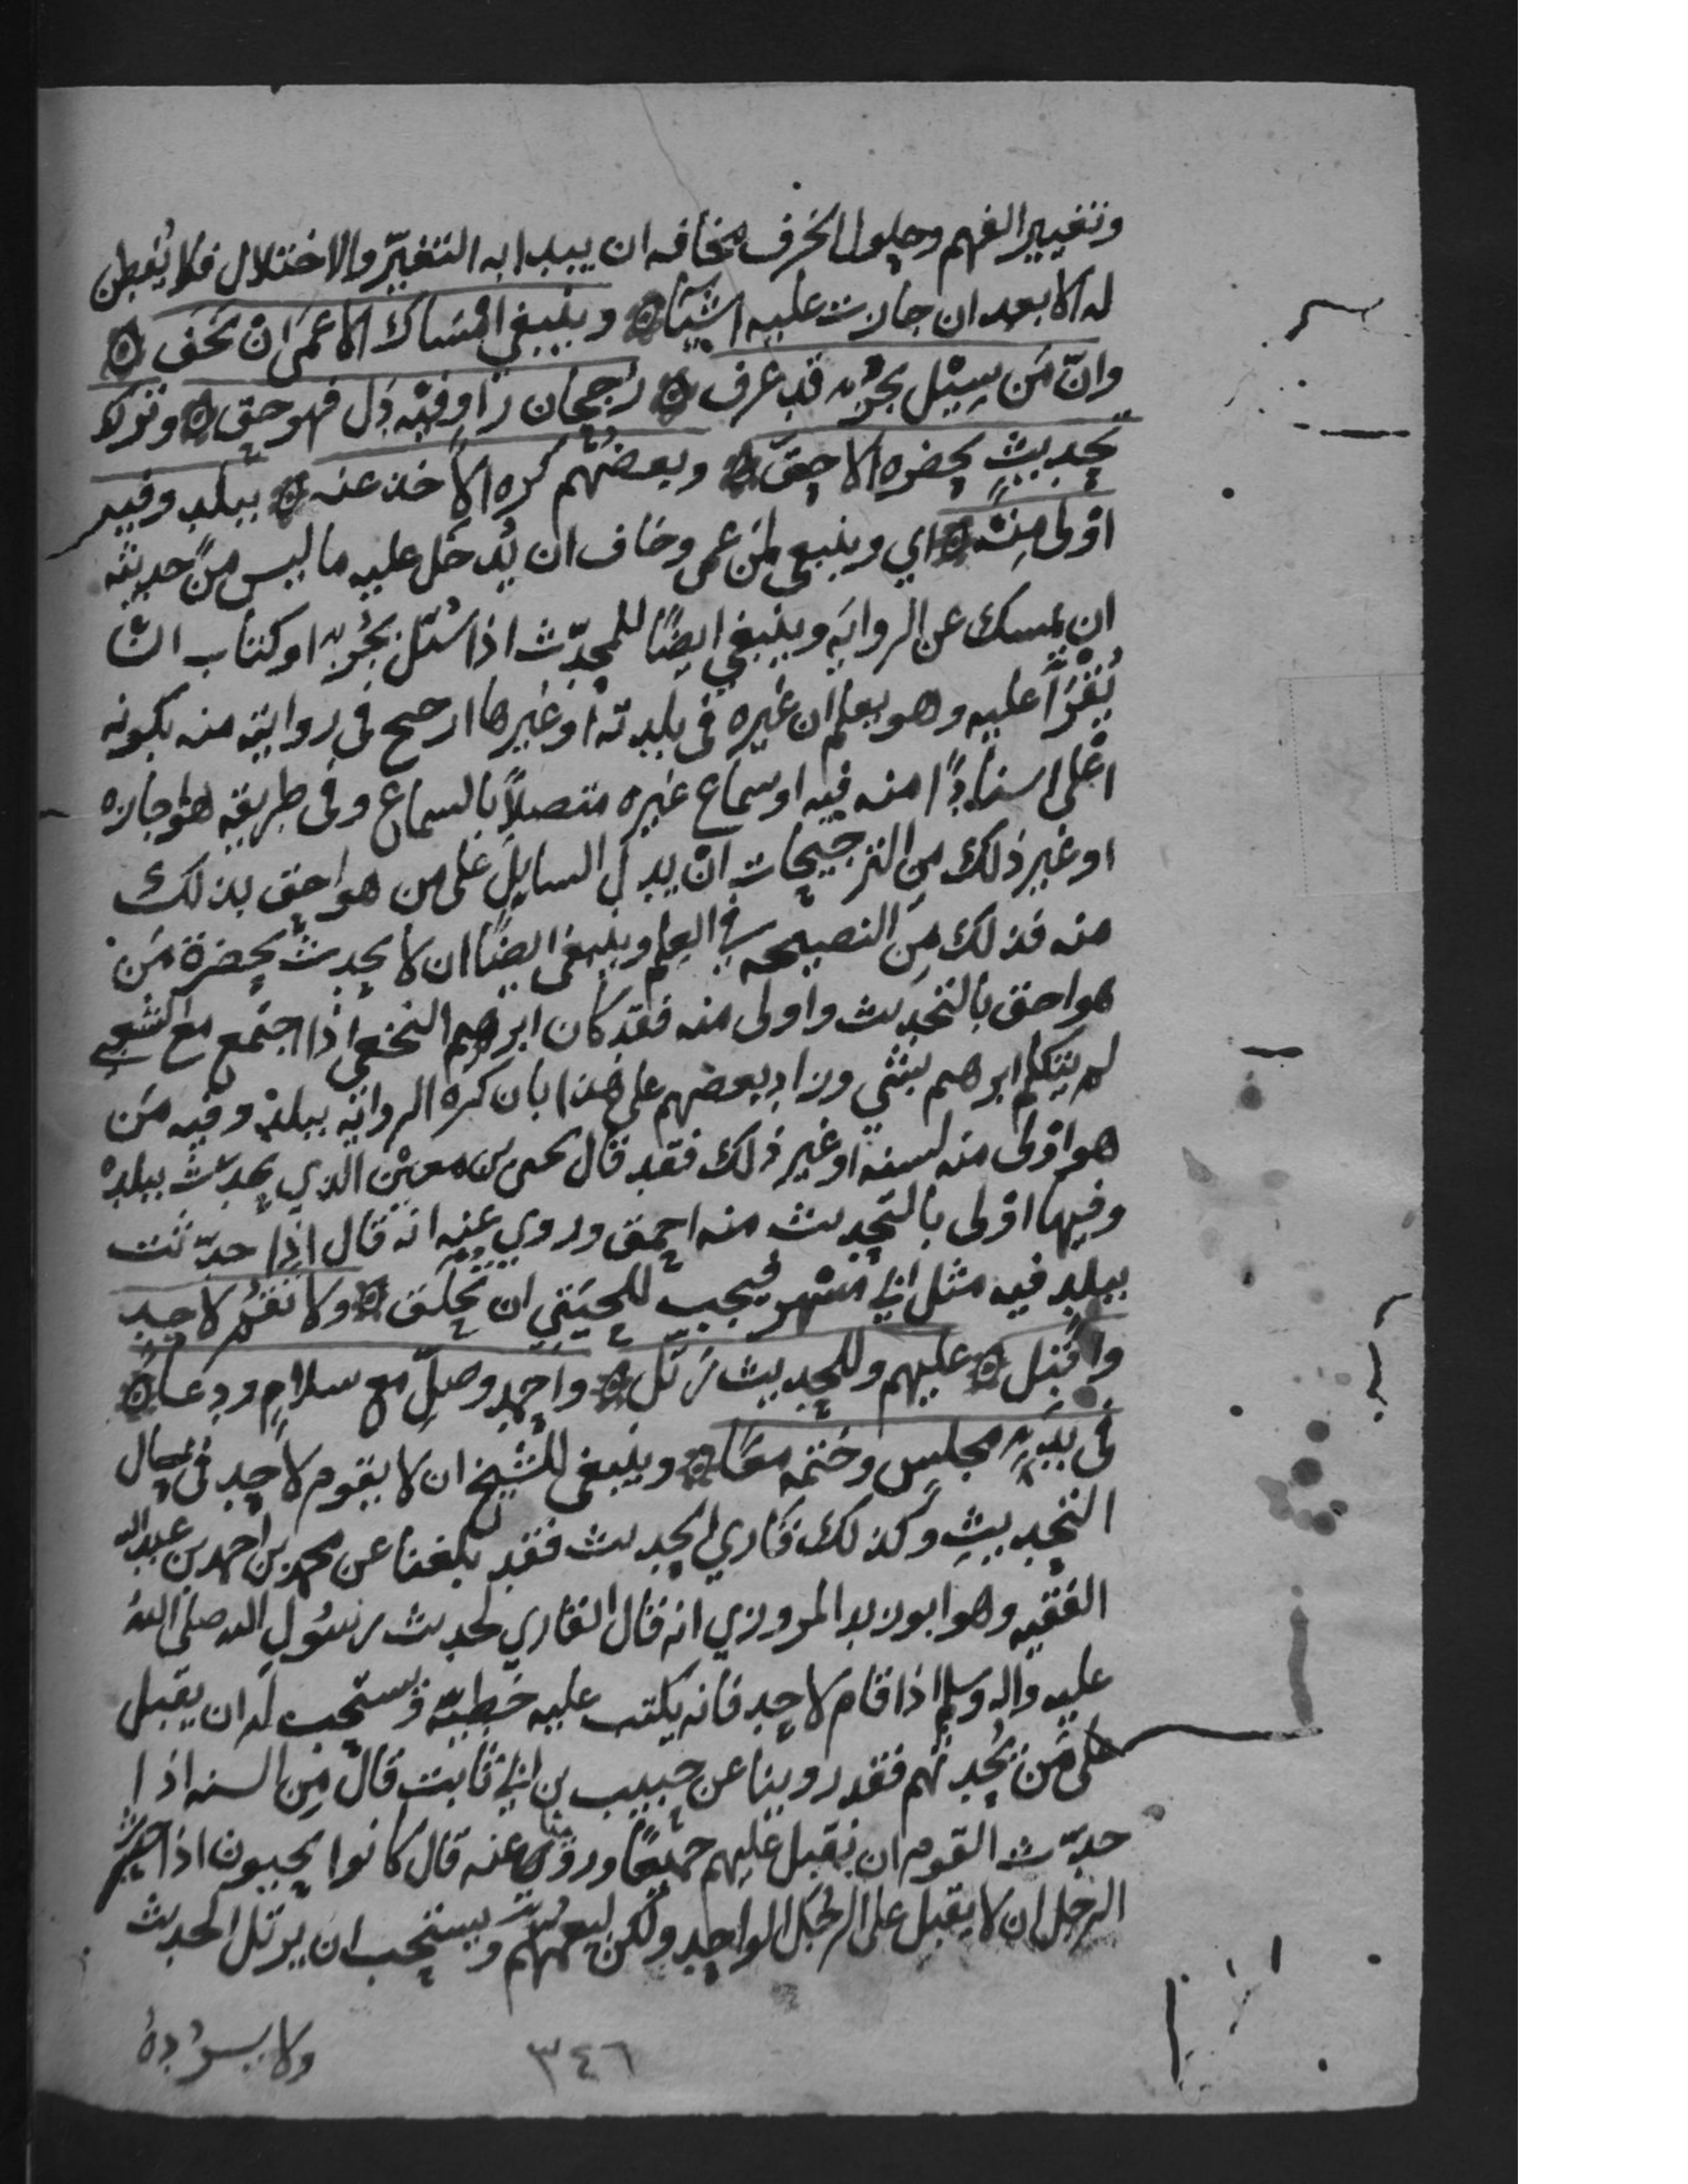 وتغيير الفهم وحلول الخرف مخافه ان يبدا به التغيّر والاختلال فلا يُفطن
له الا بعد ان جازت عليه اشيآ ۞ وينبغي امْسَاكُ الاعمَى انْ يَخَف ۞
وانّ مَن سِيْل بجُزْءٍ قد عرف ۞ رُجحَان رَاوٍ فيْه دَل فهو حق ۞ وترك
تحديثٍ بحضره الاحقّ ۞ وبعضُهم كَره الاخذ عنه ۞ ببلدٍ وفيه
اوْلى مِنْه ۞ اي وينبغي لمن عمى وخاف ان يُدخَل عليه ما ليس مِنْ حديثه
ان يمسك عن الروايَه وينبغي ايضًا للمحدّث اذا سُئل بجُزْءٍ او كتاب ان
يُقْرَأ عليه وهو يعلم ان غيره في بلدته او غيرها ارجح في روايته منه بكونه
اعْلى اسنادًا منه فيه او سماع غيره متصلاً بالسماع وفي طريقه هو اجازه
او غير ذلك مِن الترجيحات انْ يدل السايل على من هو احق بذلك
منه فذلك مِنَ النصيحه في العِلم وينبغي ايضًا ان لا يحدث بحضرة مَن
هو احق بالتحديث واولى منه فقد كان ابرهيم النخعي اذا اجتمع مع الشعبي
لم يتكلم ابرهيم بشي وزاد بعضهم على هذا بان كره الروايه ببلد وفيه مَن
هو اوْلى منه لسنه او غير ذلك فقد قال يحيى بن معين الذي يحدث ببلد
وفيها اوْلى بالتحديث منه احمق وروي عنه انه قال اذا حدّثت
ببلدٍ فيه مثل ابي مسْهر فيجب للحيَتي ان تُحلق ۞ ولا تَقُمْ لاحدٍ
واقْبل ۞ عليهم وللحديث رَتّل ۞ واحمد وصلِّ مع سلامٍ ودعا ۞
في بدءِ مجلسٍ وختمه معًا ۞ وينبغي للشيخ ان لا يقوم لاحد في حال
التحديثِ وكذلك قاري الحديث فقد بلغنا عن محمد بن احمد بن عبدالله
الفقيه وهو ابو زيد المروزي انه قال القاري لحديث رسُولِ الله صلى الله
عليه واله وسلم اذا قام لاحد فانه يكتب عليه خطيّه ويستحب له ان يقبل
على مَن يُحدثهم فقد روينا عن حبيب بن ابي ثابت قال مِن السنه اذا
حدّث القوم ان يقبل عليهم جميعًا وروينا عنه قال كانوا يحبون اذا حدّث
الرجل ان لا يقبل على الرجُل الواحد ولكن ليعمهم ويستحب ان يرتل الحديث
ولا يسرُدهُ
٣٤٦